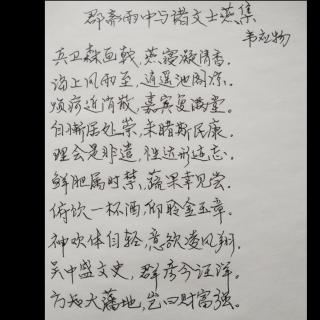 郡斋雨中与诸文士燕集
韦应物
兵卫森画戟，燕寝凝清香。
海上风雨至，逍遥池阁凉。
烦疴近消散，嘉宾复满堂。
自惭居处崇，未睹斯民康。
理会是非遣，性达形迹忘。
鲜肥属时禁，蔬果幸见尝。
俯饮一杯酒，仰聆金玉章。
神欢体自轻，意欲凌风翔。
吴中盛文史，群彦今汪洋。
方知大藩地，岂曰财富强。